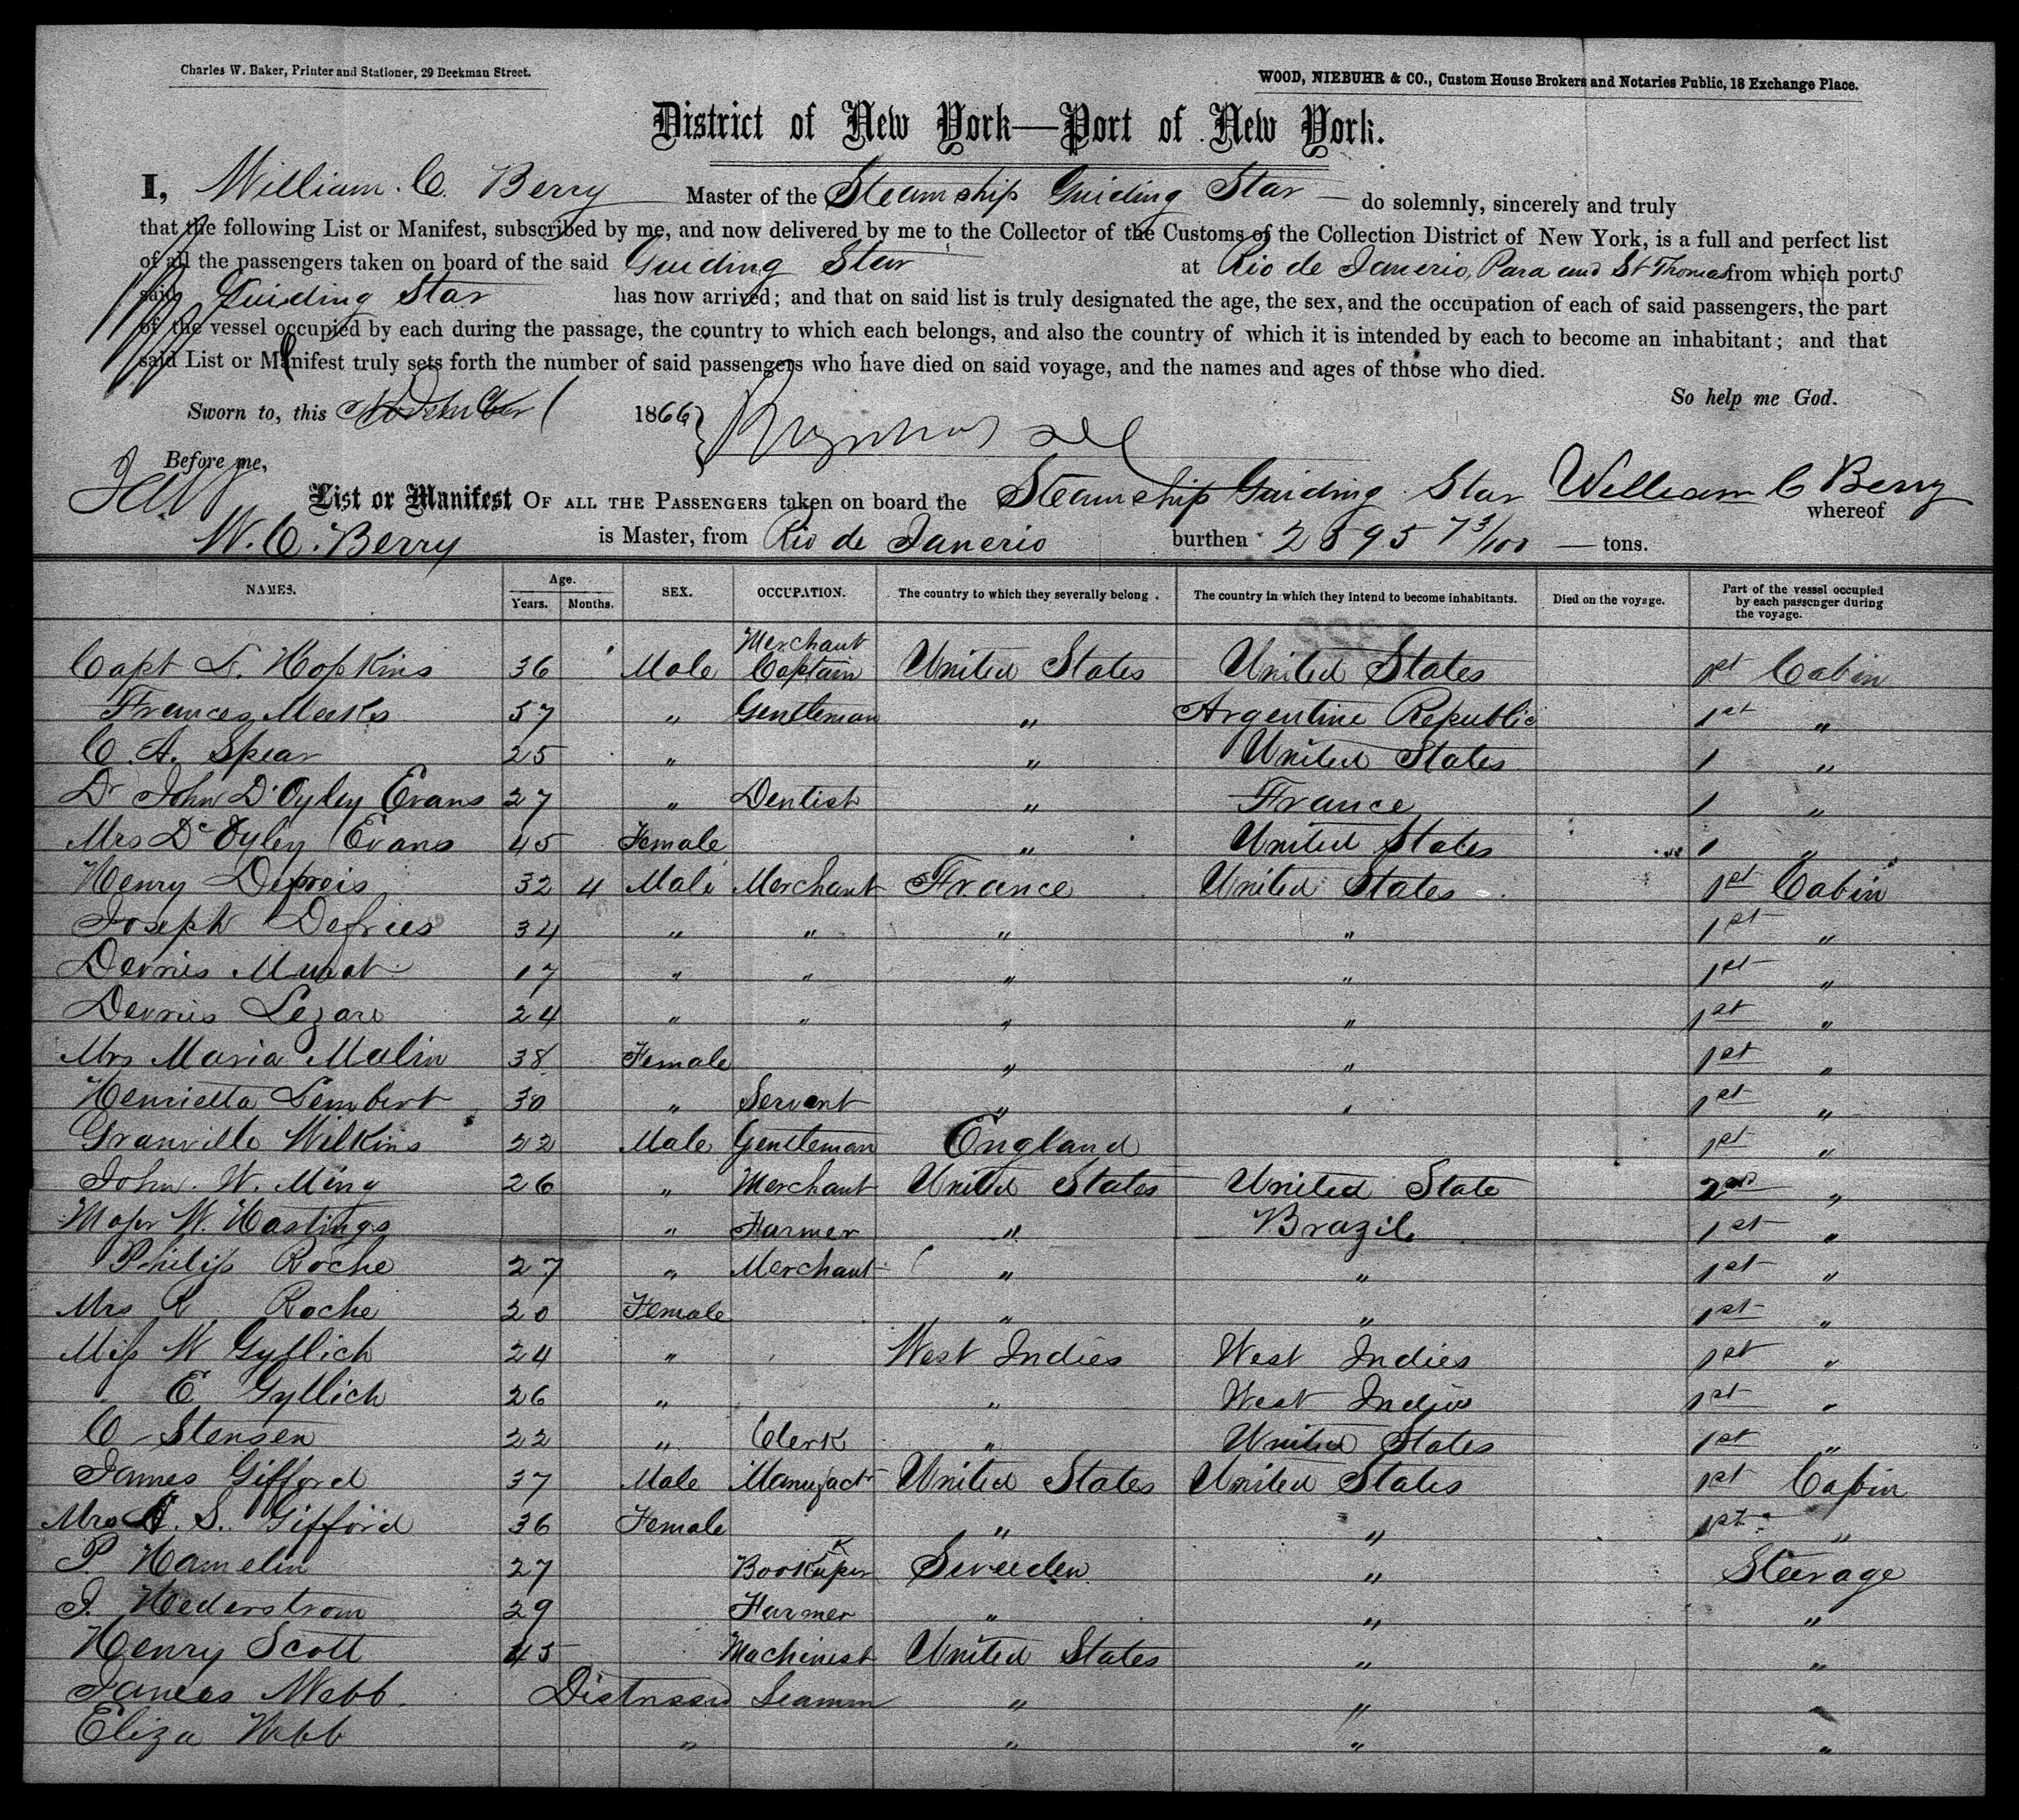 Charles W. Baker, Printer and Stationer, 29 Beekman Street.
WOOD, NIEBUHR & CO., Custom House Brokers and Notaries Public, 18 Exchange Place.
District of New York—Port of New York.
I, William C. Berry Master of the Steamship Guiding Star do solemnly, sincerely and truly
that the following List or Manifest, subscribed by me, and now delivered by me to the Collector of the Customs of the Collection District of New York, is a full and perfect list
of all the passengers taken on board of the said Guiding Star at Rio de Janerio, Para and St Thomas from which ports
said Guiding Star has now arrived; and that on said list is truly designated the age, the sex, and the occupation of each of said passengers, the part
of the vessel occupied by each during the passage, the country to which each belongs, and also the country of which it is intended by each to become an inhabitant; and that
said List or Manifest truly sets forth the number of said passengers who have died on said voyage, and the names and ages of those who died.
So help me God.
Sworn to, this November 1866
Before me,
List or Manifest OF ALL THE PASSENGERS taken on board the Steamship Guiding Star William C Berry whereof
W. C. Berry is Master, from Rio de Janerio burthen 2895 73/100 tons.
NAMES. Age. Years. Months. SEX. OCCUPATION. The country to which they severally belong. The country in which they intend to become inhabitants. Died on the voyage. Part of the vessel occupied by each passenger during the voyage.
Capt L. Hopkins 36 Male Merchant Captain United States United States 1st Cabin
Frances Meeks 57 " Gentleman " Argentine Republic 1st "
C. A. Spear 25 " " United States 1 "
Dr John D'Oyley Evans 27 " Dentist " France 1 "
Mrs D'Oyley Evans 45 Female " United States 1 "
Henry Defreis 32 4 Male Merchant France United States 1st Cabin
Joseph Defries 34 " " " " 1st "
Devries Murat 17 " " " " 1st "
Devries Lezare 24 " " " " 1st "
Mrs Maria Malin 38 Female " " 1st "
Henrietta Lembert 30 " Servent " " 1st "
Granville Wilkins 22 Male Gentleman England 1st "
John. W. Ming 26 " Merchant United States United State 2nd "
Major W. Hastings " Farmer " Brazil 1st "
Philip Roche 27 " Merchant " " 1st "
Mrs R. Roche 20 Female " " 1st "
Miss W Gyllich 24 " West Indies West Indies 1st "
E Gyllich 26 " " West Indies 1st "
C Stensen 22 " Clerk " United States 1st "
James Gifford 37 Male Manufactr United States United States 1st Cabin
Mrs A. S. Gifford 36 Female " " 1st "
P. Hamelin 27 Bookkeper Sweeden " Steerage
J. Hederstrom 29 Farmer " " "
Henry Scott 45 Machinest United States " "
James Webb. Distressed Seamen " " "
Eliza Webb " " " "